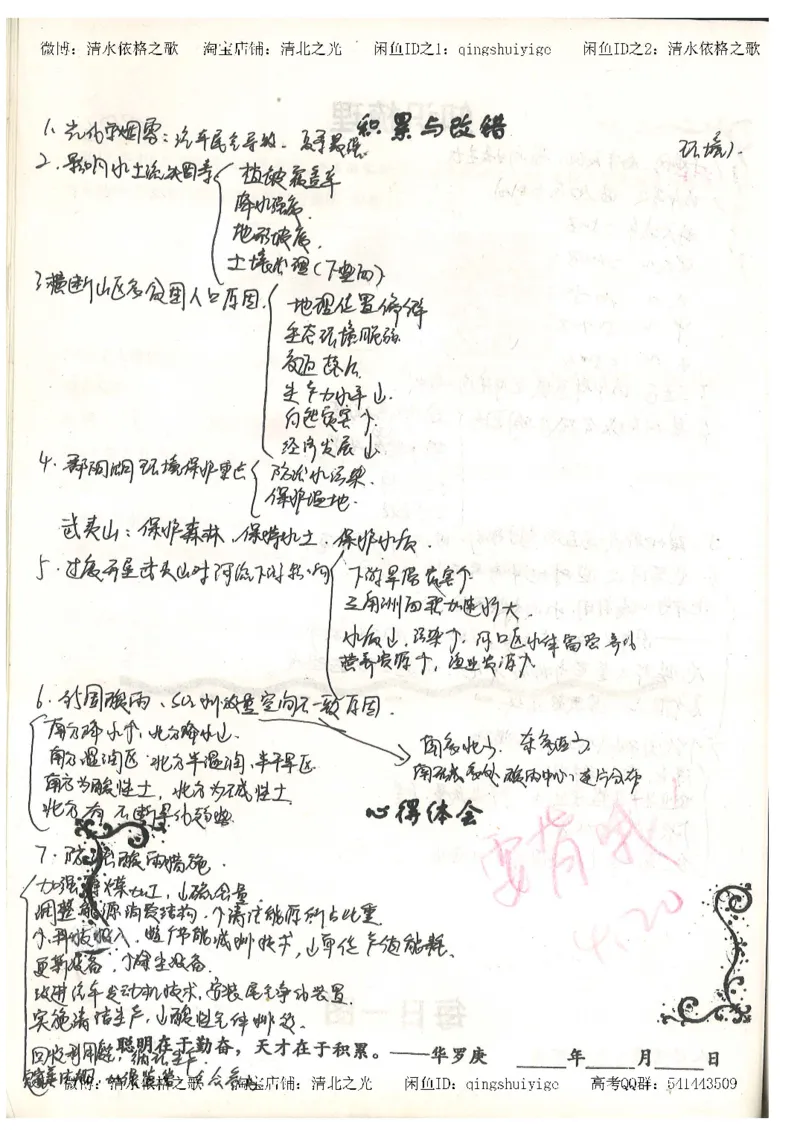 微博：清水依格之歌 淘宝店铺：清北之光 闲鱼ID之1：qingshuiyige 闲鱼ID之2：清水依格之歌
积累与改错
环境）.
1. 光化学烟雾：汽车尾气导致. 夏季最强
2. 影响水土流失因素
植被覆盖率
降水强度.
地形坡度.
土壤水理（下垫面）
3 横断山区多贫困人口原因.
地理位置偏僻
生态环境脆弱
生产力水平↓.
自然灾害↑.
经济发展↓
4. 鄱阳湖环境保护重点
防治水污染.
保护湿地.
武夷山：保护森林、保持水土、保护水质.
5. 过度开垦武夷山对河流下游影响
下游旱涝灾害↑
三角洲面积加速扩大
水质↓, 污染↑, 河口区水体富营养化
营养资源↑, 渔业资源
6. 我国酸雨、SO₂排放量空间不一致原因.
南方降水↑, 北方降水↓.
南方湿润区 北方半湿润, 半干旱区
南方为酸性土, 北方为碱性土
南多北少. 东多西少
酸雨中心、连片分布
心得体会
要背哦！
4.20
7. 防治酸雨措施.
加强 煤加工, ↓硫含量
调整能源消费结构, ↑清洁能源所占比重
↑科技投入, 节能减排技术, ↓单位产值能耗.
更新设备, ↑除尘设备.
改进汽车发动机技术, 安装尾气净化装置.
实施清洁生产, ↓酸性气体排放.
回收利用
聪明在于勤奋，天才在于积累。——华罗庚 年 月 日
每日一图
微博：清水依格之歌 淘宝店铺：清北之光 闲鱼ID：qingshuiyige 高考QQ群：541443509